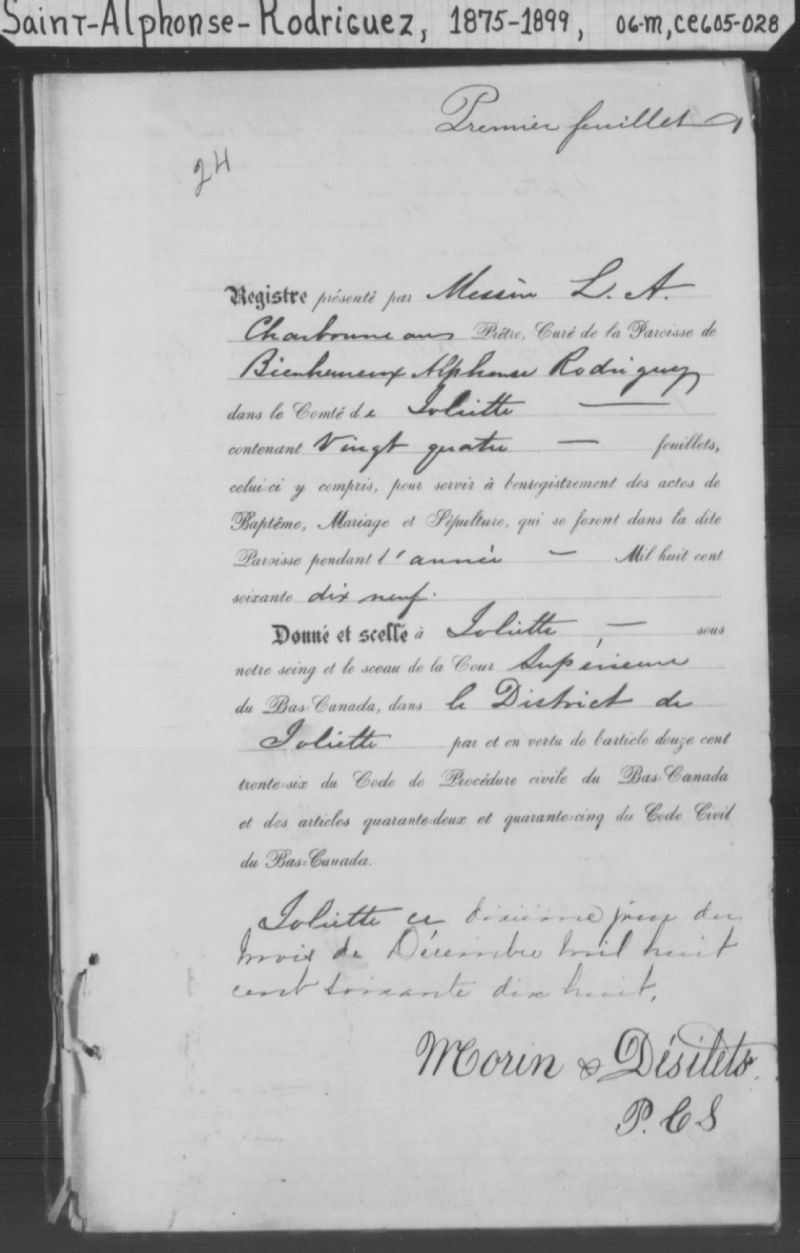 Saint-Alphonse-Rodriguez, 1875-1899, 06-M, CE605-028
Premier feuillet
24
Registre présenté par Messire L. A.
Charbonneau Prêtre, Curé de la Paroisse de
Bienheureux Alphonse Rodriguez
dans le Comté de Joliette —
contenant Vingt quatre — feuillets,
celui-ci y compris, pour servir à l'enregistrement des actes de
Baptême, Mariage et Sépulture, qui se feront dans la dite
Paroisse pendant l'année — Mil huit cent
soixante dix neuf.
Donné et scellé à Joliette, — sous
notre seing et le sceau de la Cour Supérieure
du Bas-Canada, dans le District de
Joliette par et en vertu de l'article douze cent
trente-six du Code de Procédure civile du Bas-Canada
et des articles quarante-deux et quarante-cinq du Code Civil
du Bas-Canada.
Joliette ce dixième jour du
mois de Décembre mil huit
cent soixante dix huit.
Morin & Désilets
P. C S